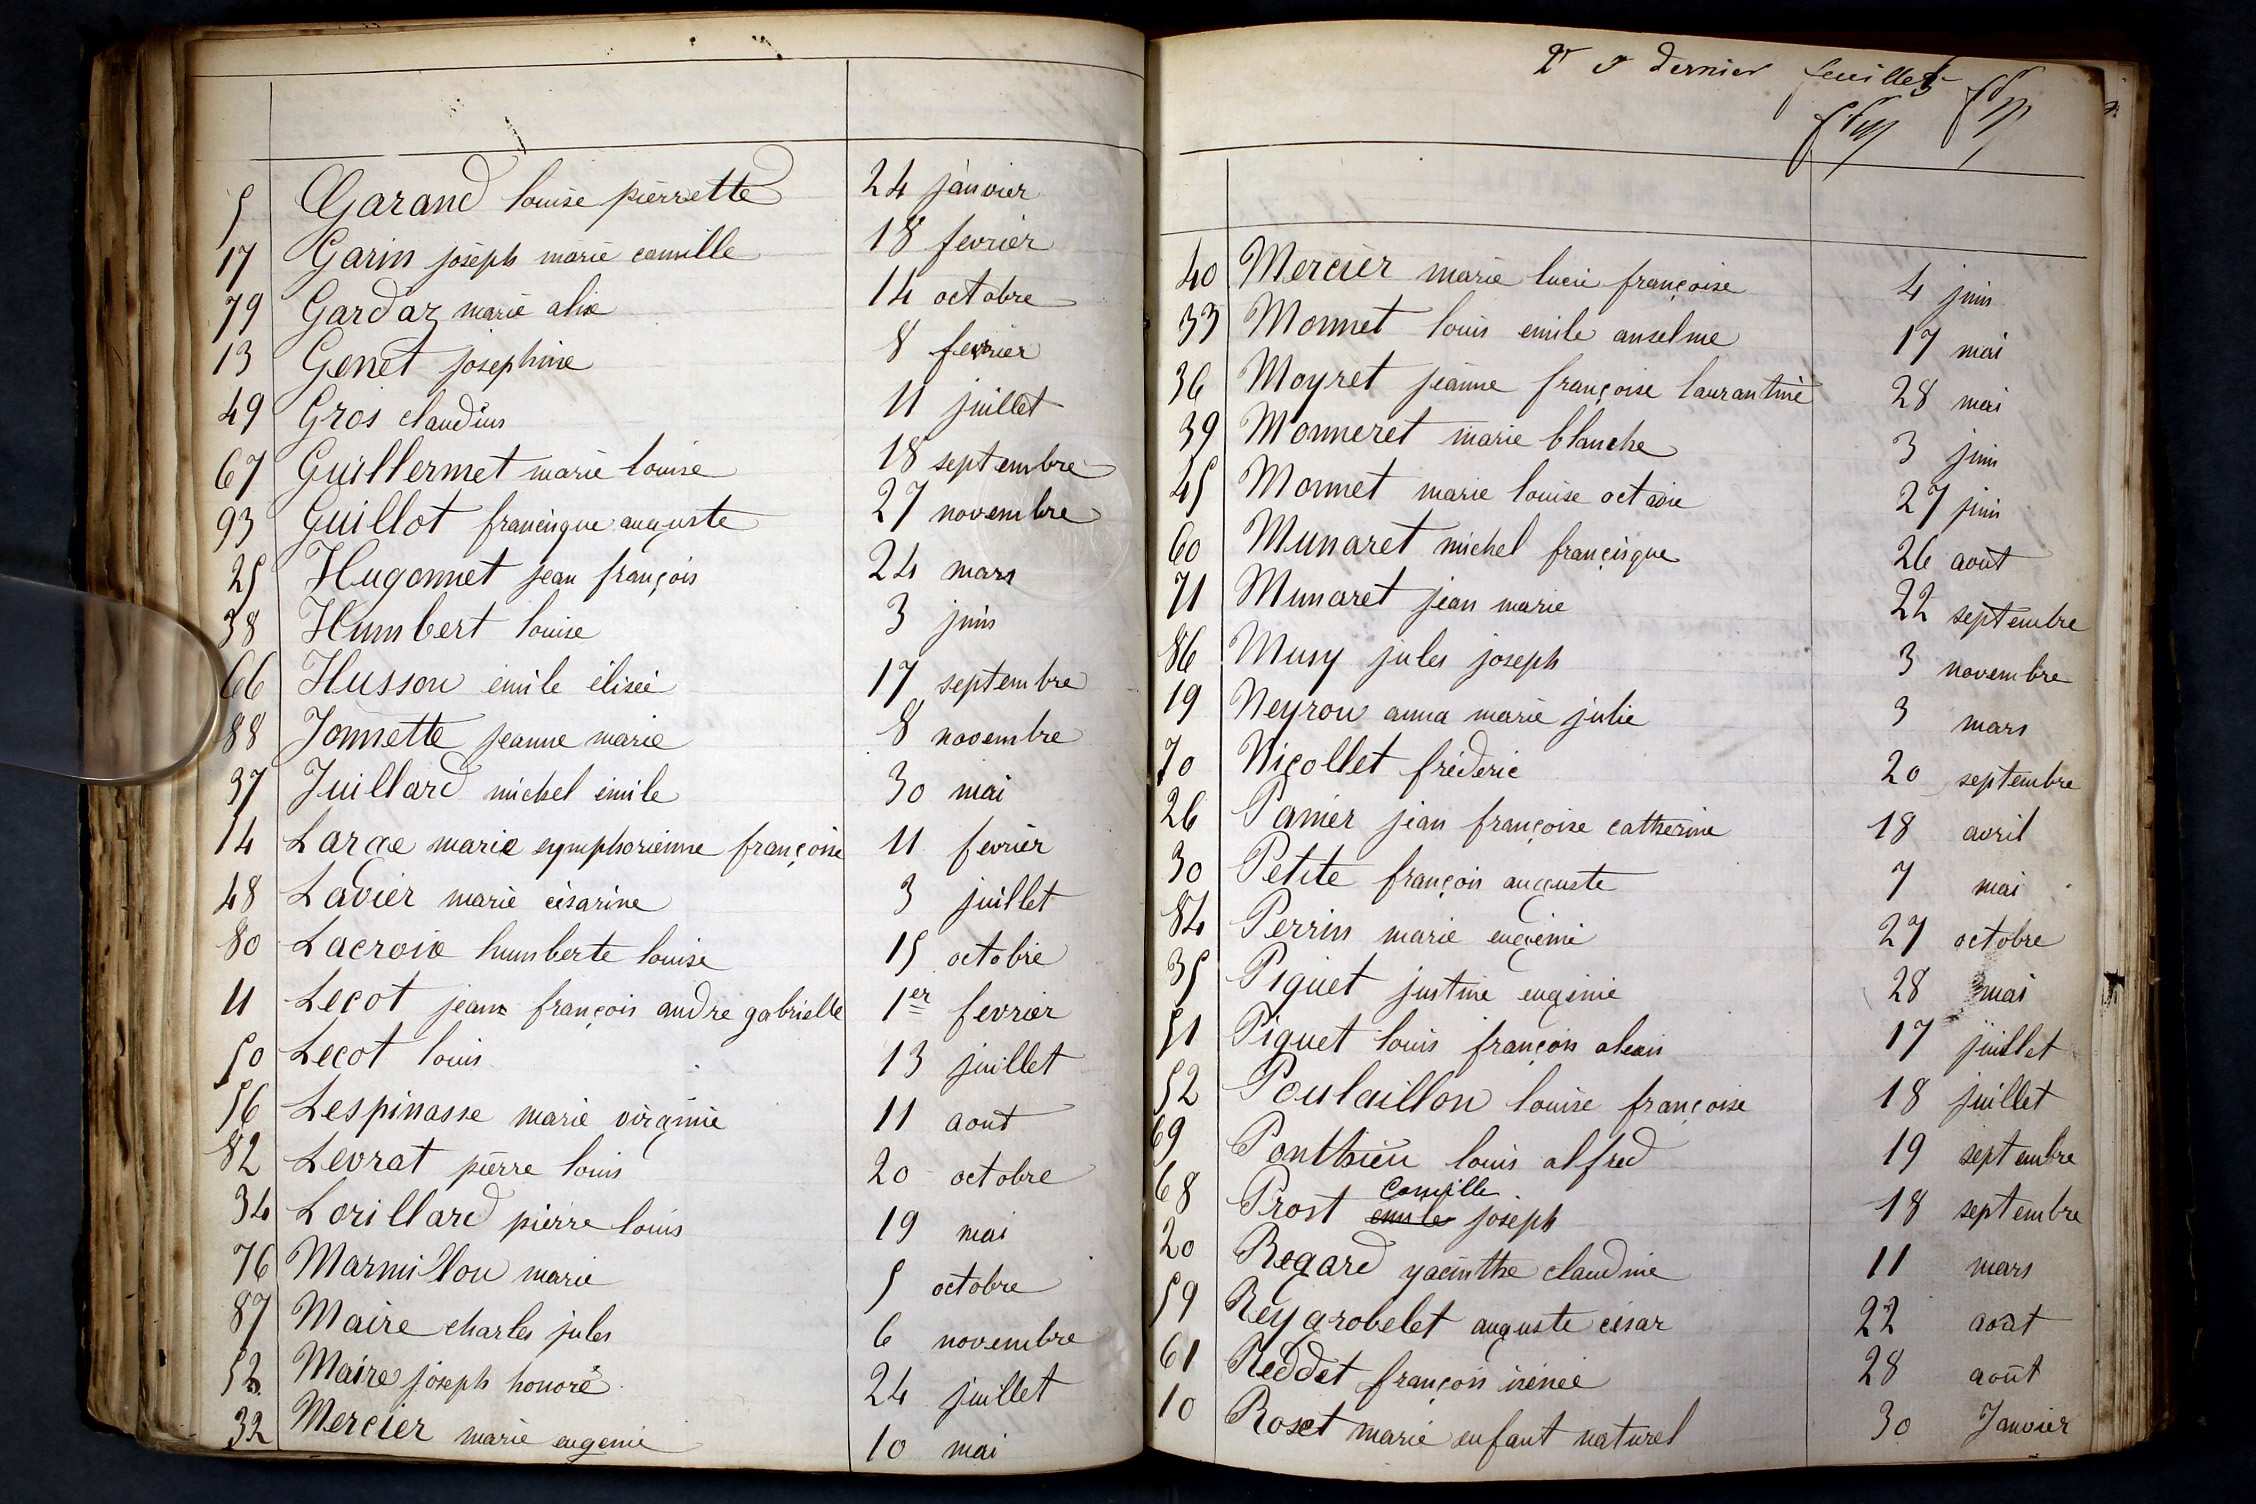 5 Garand louise pierrette 24 janvier
17 Garin joseph marie camille 18 fevrier
79 Gardaz marie alix 14 octobre
13 Genet josephine 8 fevrier
49 Gros claudius 11 juillet
67 Guillermet marie louise 18 septembre
93 Guillot francisque auguste 27 novembre
25 Hugonnet jean françois 24 mars
38 Humbert louise 3 juin
66 Husson emile élisée 17 septembre
88 Jonnette jeanne marie 8 novembre
37 Juillard michel emile 30 mai
14 Large marie symphorienne françoise 11 fevrier
48 Lavier marie césarine 3 juillet
80 Lacroix humberte louise 15 octobre
11 Lecot jean françois andre gabrielle 1er fevrier
50 Lecot louis 13 juillet
56 Lespinasse marie virginie 11 aout
82 Levrat pierre louis 20 octobre
34 Lorillard pierre louis 19 mai
76 Marmillon marie 5 octobre
87 Maire charles jules 6 novembre
52 Maire joseph honoré 24 juillet
32 Mercier marie eugenie 10 mai
2e & dernier feuillet
40 Mercier marie lucie françoise 4 juin
33 Monnet louis emile anselme 17 mai
36 Moyret jeanne françoise laurantine 28 mai
39 Monneret marie blanche 3 juin
45 Monnet marie louise octavie 27 juin
60 Munaret michel francisque 26 août
71 Munaret jean marie 22 septembre
86 Musy jules joseph 3 novembre
19 Neyron anna marie julie 3 mars
70 Nicollet fréderic 20 septembre
26 Panier jean françoise catherine 18 avril
30 Petite françois auguste 7 mai
84 Perrin marie eugénie 27 octobre
35 Piquet justine eugénie 28 mai
51 Piquet louis françois alexis 17 juillet
52 Poulaillon louise françoise 18 juillet
69 Ponthieu louis alfred 19 septembre
camille
68 Prost emile joseph 18 septembre
20 Regard yacinthe claudine 11 mars
59 Reygrobelet auguste césar 22 août
61 Reddet françois irénée 28 août
10 Roset marie enfant naturel 30 Janvier